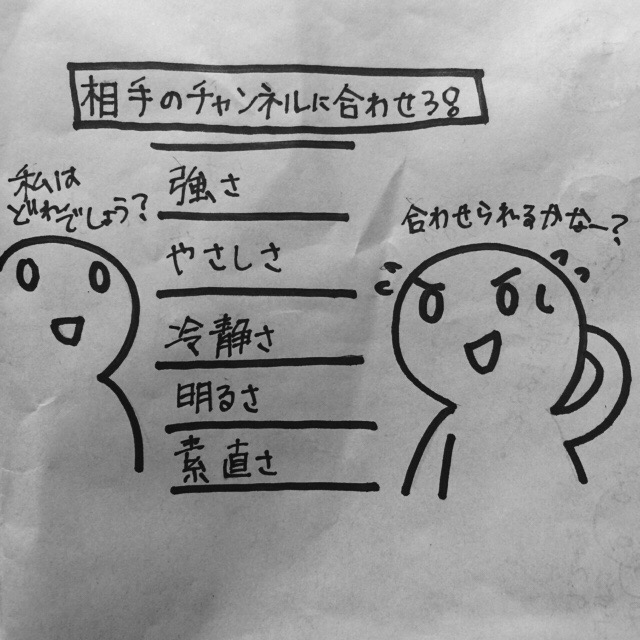 相手のチャンネルに合わせろ!!
私は
どれでしょう?
強さ
やさしさ
冷静さ
明るさ
素直さ
合わせられるかなー?